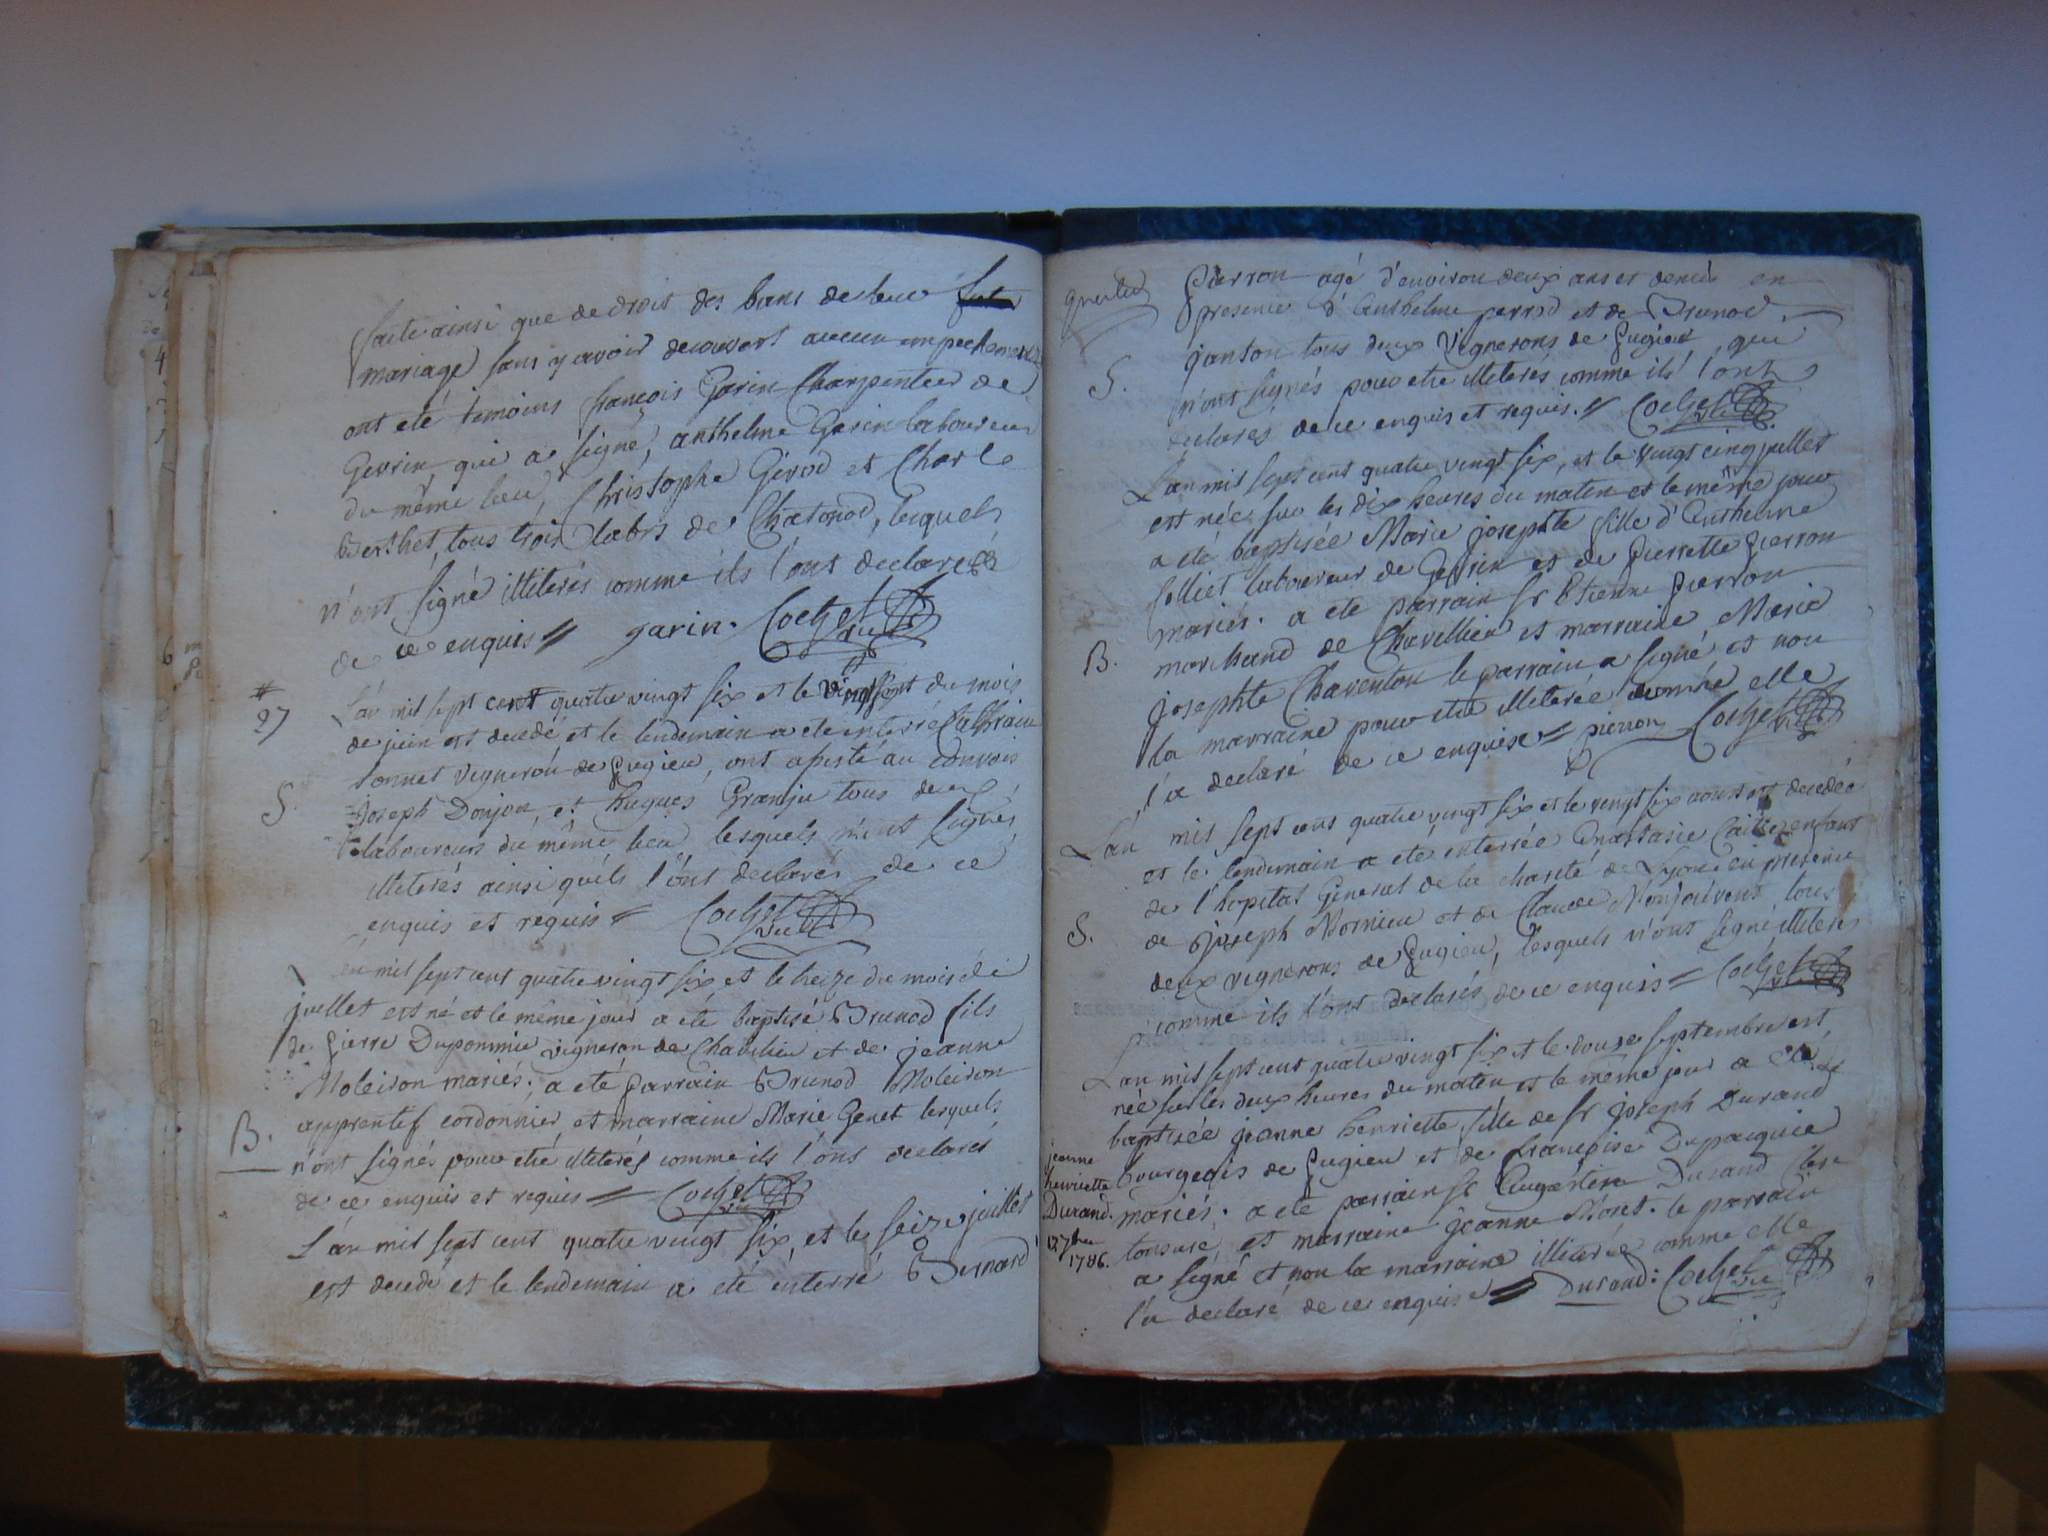 faite ainsi que de droit des bans de leur
mariage sans y avoir decouvert aucun empechement
ont eté temoins françois Garin Charpentier de
Gevrin qui a signé, anthelme Gerin laboureur
du même lieu, Christophe Girod et Charle
Berthet, tous trois labrs de Chatonod, lesquels
n'ont signé illiterés comme ils l'ont declaré
de ce enquis // garin. Cochet vic
# 27
L'an mil sept cent quatre vingt six et le vingt sept du mois
de juin est decedé et le lendemain a eté interré
bonnet vigneron de Pugieu, ont assisté au convois
S.
Joseph Donjon, et hugues Granju tous deux
laboureurs du même lieu lesquels n'ont signés
illiterés ainsi qu'ils l'ont declarés de ce
enquis et requis = Cochet vic
L'an mil sept cent quatre vingt six et le treize du mois de
juillet est né et le même jour a été baptisé Brunod fils
de Pierre Dupommier vigneron de Chavillieu et de jeanne
Moleiron mariés; a eté parrain Brunod Moleiron
B.
apprentif cordonnier et marraine Marie Genet lesquels
n'ont signés pour etre illiterés comme ils l'ont declaré
de ce enquis et requis = Cochet vic
L'an mil sept cent quatre vingt six, et le seize juillet
est decedé et le lendemain a eté enterré Bernard
Pierron agé d'environ deux ans et demis en
presence d'Anthelme perrod et de Brunod
janton tous deux vignerons de Pugieu, qui
S.
n'ont signés pour etre illiterés comme ils l'ont
declarés de ce enquis et requis. // Cochet vic
L'an mil sept cent quatre vingt six, et le vingt cinq juillet
est née sur les dix heures du matin et le même jour
a eté baptisée Marie josephte fille d'Anthelme
Colliet laboureur de Gevrin et de Pierrette Pierron
mariés. a ete parrain sr Etienne Pierron
B.
marchand de Chavillieu et marraine Marie
josephte Charenton le parrain a signé et non
la marraine pour etre illiterée comme elle
l'a declaré de ce enquise = pierron Cochet vic
L'an mil sept cent quatre vingt six et le vingt six aout est decedée
et le lendemain a eté enterrée Anastasie enfant
de l'hopital General de la charité de Lyon en presence
S.
de Joseph Mornieu et de Claude Monjoivent tous
deux vignerons de Pugieu, lesquels n'ont signé illiteres
comme ils l'ont declarés de ce enquis = Cochet vic
L'an mil sept cent quatre vingt six et le douze septembre est
née sur les deux heures du matin et le même jour a eté
baptisée jeanne henriette fille de sr joseph Durand
bourgeois de Pugieu et de françoise Dupasquier
jeanne
henriette
Durand.
12 7bre
1786.
mariés. a eté parrain sr Augustin Durand clerc
tonsuré, et marraine jeanne Moret. le parrain
a signé et non la marraine illiterée comme elle
l'a declaré de ce enquise // Durand: Cochet vic